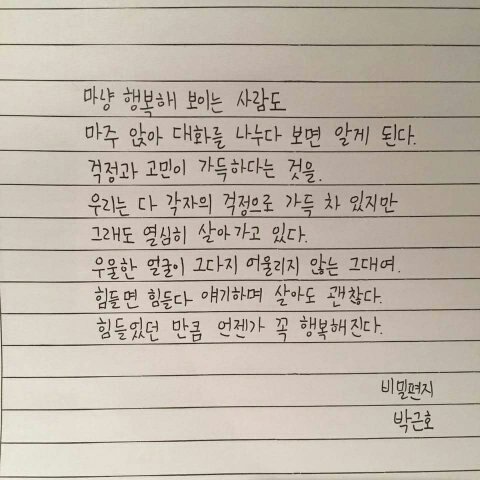 마냥 행복해 보이는 사람도
마주 앉아 대화를 나누다 보면 알게 된다.
걱정과 고민이 가득하다는 것을.
우리는 다 각자의 걱정으로 가득 차 있지만
그래도 열심히 살아가고 있다.
우울한 얼굴이 그다지 어울리지 않는 그대여.
힘들면 힘들다 얘기하며 살아도 괜찮다.
힘들었던 만큼 언젠가 꼭 행복해진다.
비밀편지
박근호